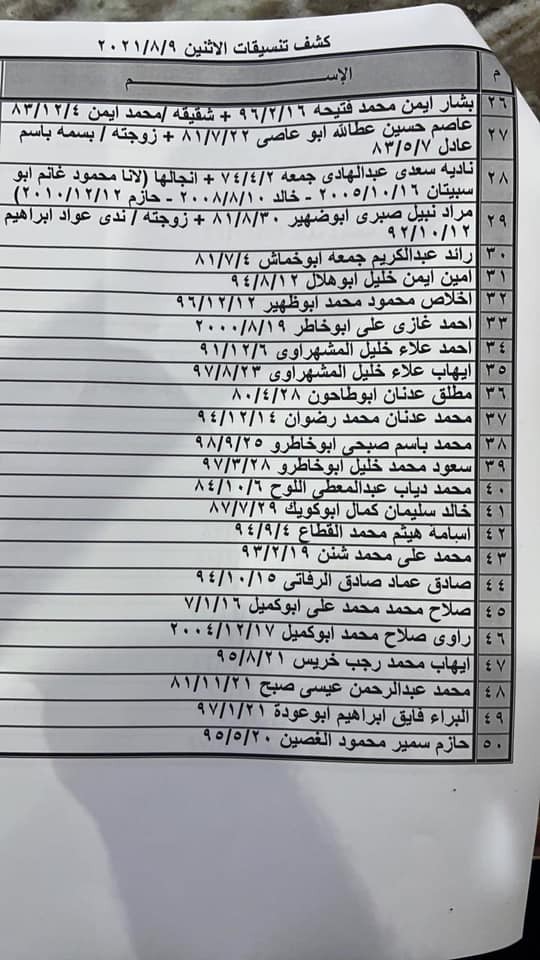 كشف تنسيقات الاثنين ٢٠٢١/٨/٩
م الإســـــــم
٢٦ بشار ايمن محمد فتيحه ٩٦/٢/١٦ + شقيقه /محمد ايمن ٨٣/١٢/٤
٢٧ عاصم حسين عطالله ابو عاصى ٨١/٧/٢٢ + زوجته / بسمه باسم
عادل ٨٣/٥/٧
٢٨ ناديه سعدى عبدالهادى جمعه ٧٤/٤/٢ + انجالها (لانا محمود غانم ابو
سبيتان ٢٠٠٥/١٠/١٦ - خالد ٢٠٠٨/٨/١٠ - حازم ٢٠١٠/١٢/١٢)
٢٩ مراد نبيل صبرى ابوضهير ٨١/٨/٣٠ + زوجته / ندى عواد ابراهيم
٩٢/١٠/١٢
٣٠ رائد عبدالكريم جمعه ابوخماش ٨١/٧/٤
٣١ امين ايمن خليل ابوهلال ٩٤/٨/١٢
٣٢ اخلاص محمود محمد ابوظهير ٩٦/١٢/١٢
٣٣ احمد غازى على ابوخاطر ٢٠٠٠/٨/١٩
٣٤ احمد علاء خليل المشهراوى ٩١/١٢/٦
٣٥ ايهاب علاء خليل المشهراوى ٩٧/٨/٢٣
٣٦ مطلق عدنان ابوطاحون ٨٠/٤/٢٨
٣٧ محمد عدنان محمد رضوان ٩٤/١٢/١٤
٣٨ محمد باسم صبحى ابوخاطرو ٩٨/٩/٢٥
٣٩ سعود محمد خليل ابوخاطرو ٩٧/٣/٢٨
٤٠ محمد دياب عبدالمعطى اللوح ٨٤/١٠/٦
٤١ خالد سليمان كمال ابوكويك ٨٧/٧/٢٩
٤٢ اسامة هيثم محمد القطاع ٩٤/٩/٤
٤٣ محمد على محمد شنن ٩٣/٢/١٩
٤٤ صادق عماد صادق الرفاتى ٩٤/١٠/١٥
٤٥ صلاح محمد محمد على ابوكميل ٧/١/١٦
٤٦ راوى صلاح محمد ابوكميل ٢٠٠٤/١٢/١٧
٤٧ ايهاب محمد رجب خريس ٩٥/٨/٢١
٤٨ محمد عبدالرحمن عيسى صبح ٨١/١١/٢١
٤٩ البراء فايق ابراهيم ابوعودة ٩٧/١/٢١
٥٠ حازم سمير محمود الغصين ٩٥/٥/٢٠